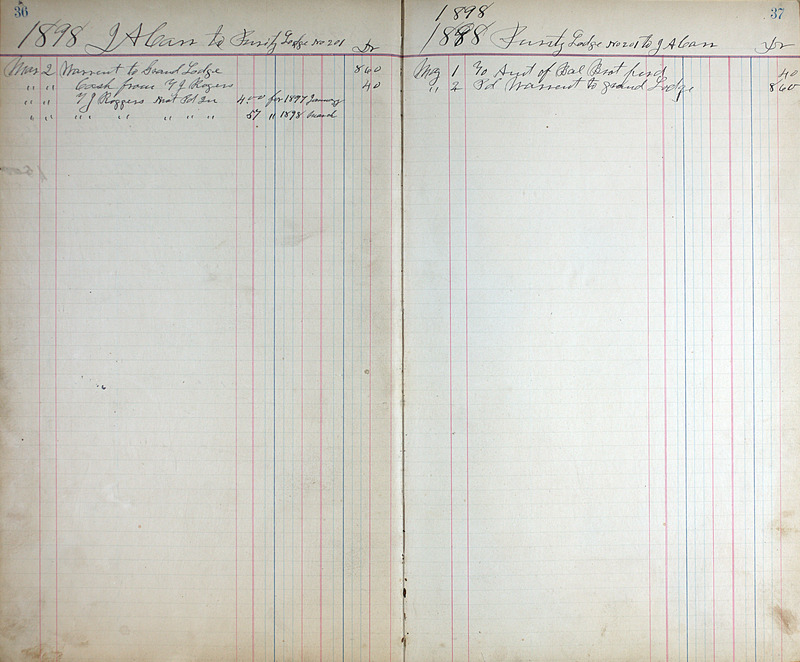 36
1898 J A Carr to Purity Lodge No 201 Dr
Mar 2 Warrent to Grand Lodge 860
" " Cash from T J Rogers 40
" " T J Roggers not Pd In 400 for 1897 January
" " " " " " " 57 " 1898
37
1898
1888 Purity Lodge No 201 to J A Carr Dr
1 To Amt of Bal Brot forwd 40
" 2 Pd Warrent to grand Lodge 860